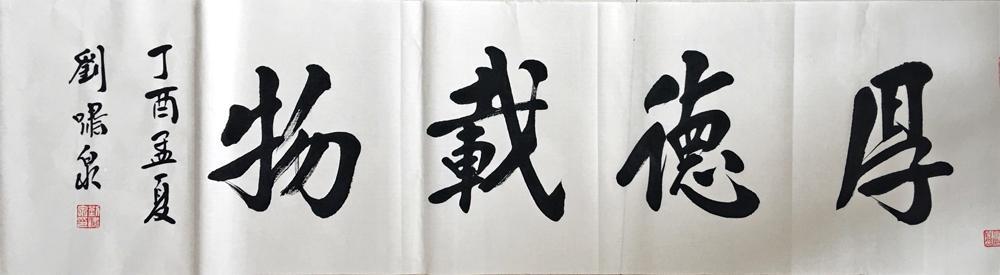 厚德載物
丁酉孟夏
劉嘯泉